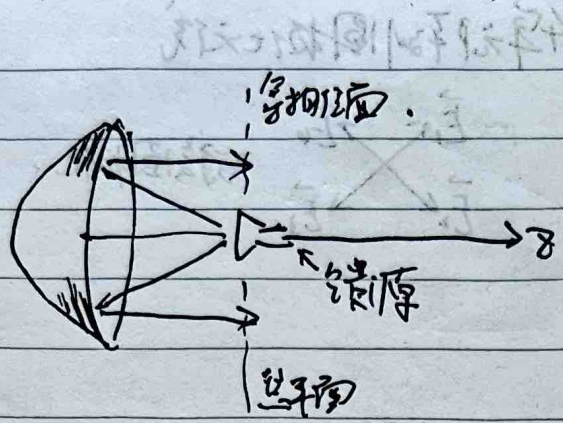 等相位面.
z
馈源
焦平面